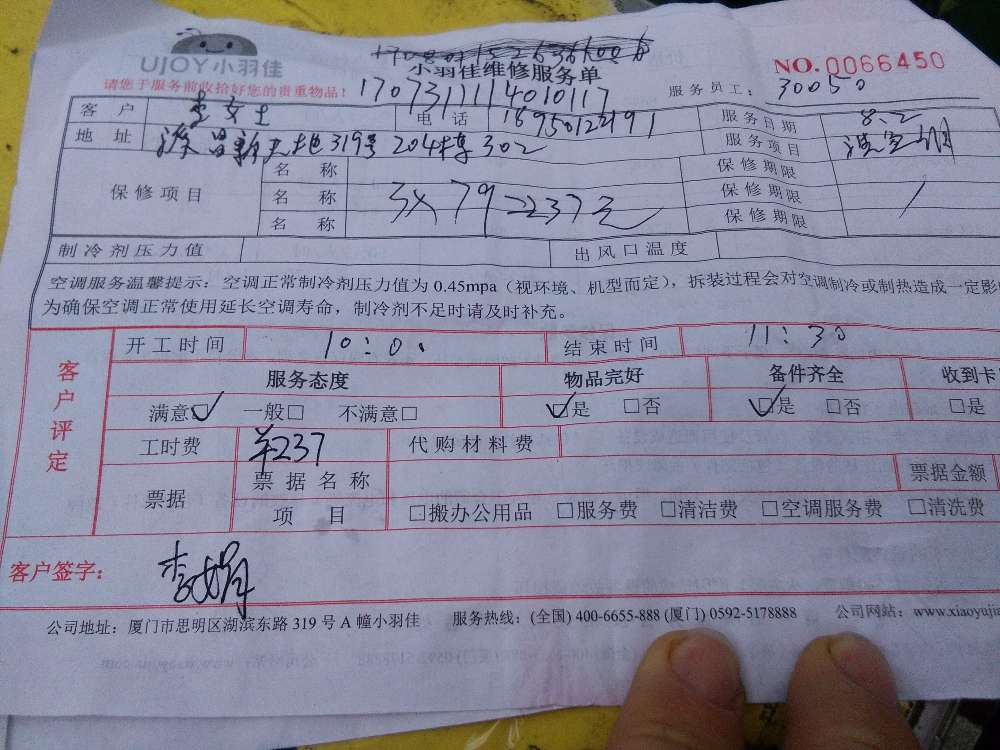 UJOY小羽佳
小羽佳维修服务单
NO.0066450
请您于服务前收拾好您的贵重物品!
1707311114010117
服务员工: 30050
客户 李女士 电话 18950122191 服务日期 8.2
地址 禄昌新天地319号204楼302 服务项目 洗空调
保修项目 名称 保修期限
名称 3X79=237元 保修期限 /
名称 保修期限
制冷剂压力值 出风口温度
空调服务温馨提示:空调正常制冷剂压力值为 0.45mpa(视环境、机型而定),拆装过程会对空调制冷或制热造成一定影
为确保空调正常使用延长空调寿命,制冷剂不足时请及时补充。
客户评定
开工时间 10:00 结束时间 11:30
服务态度 物品完好 备件齐全 收到卡
满意☑ 一般□ 不满意□ ☑是 □否 ☑是 □否 □是
工时费 ¥237 代购材料费
票据 票据名称 票据金额
项目 □搬办公用品 □服务费 □清洁费 □空调服务费 □清洗费
客户签字: 李
公司地址:厦门市思明区湖滨东路 319 号 A 幢小羽佳 服务热线:(全国) 400-6655-888 (厦门) 0592-5178888 公司网站:www.xiaoyujia